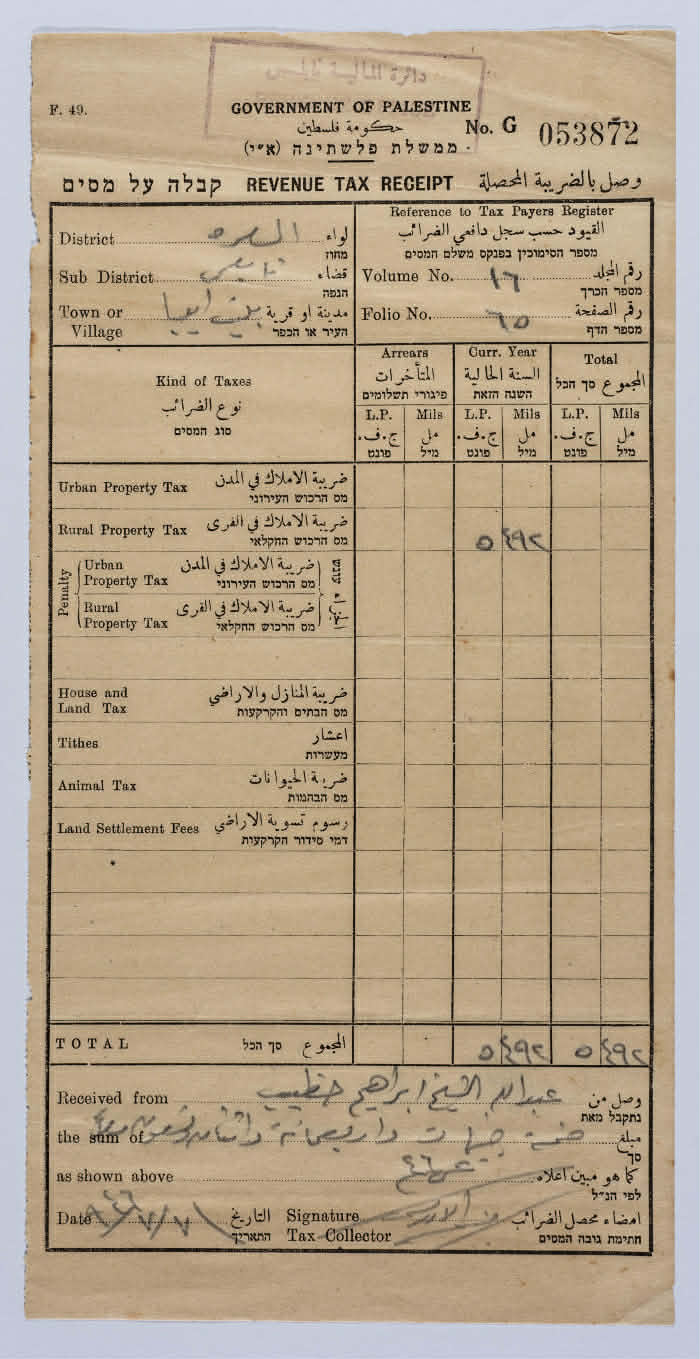 دائرة المالية نابلس
F. 49.
GOVERNMENT OF PALESTINE
حكومة فلسطين
No. G 053872
ממשלת פלשתינה (א״י)
קבלה על מסים REVENUE TAX RECEIPT وصل بالضريبة المحصلة
Reference to Tax Payers Register
القيود حسب سجل دافعي الضرائب
מספר הסימוכין בפנקס משלם המסים
District لواء
מחוז
Sub District نابلس قضاء
הנפה
Town or Village مدينة او قرية
העיר או הכפר
Volume No. ١٦ رقم المجلد
מספר הכרך
Folio No. ٦٥ رقم الصفحة
מספר הדף
Kind of Taxes
نوع الضرائب
סוג המסים
Arrears
المتأخرات
פיגורי תשלומים
Curr. Year
السنة الحالية
השנה הזאת
Total
المجموع סך הכל
L.P. Mils L.P. Mils L.P. Mils
ج.ف. مل ج.ف. مل ج.ف. مل
פונט מיל פונט מיל פונט מיל
Urban Property Tax ضريبة الاملاك في المدن
מס הרכוש העירוני
Rural Property Tax ضريبة الاملاك في القرى
מס הרכוש החקלאי
٥ ٤٩٢
Penalty
Urban Property Tax ضريبة الاملاك في المدن
מס הרכוש העירוני
Rural Property Tax ضريبة الاملاك في القرى
מס הרכוש החקלאי
עונש
House and Land Tax ضريبة المنازل والاراضي
מס הבתים והקרקעות
Tithes اعشار
מעשרות
Animal Tax ضريبة الحيوانات
מס הבהמות
Land Settlement Fees رسوم تسوية الاراضي
דמי סידור הקרקעות
TOTAL סך הכל المجموع ٥ ٤٩٢ ٥ ٤٩٢
Received from عبدالله الشيخ ابراهيم خطيب وصل من
נתקבל מאת
the sum of خمسة جنيهات واربعمائة واثنان وتسعون مبلغ
סך
as shown above كما هو مبين اعلاه
לפי הנ״ל
Date التاريخ
התאריך
Signature Tax Collector امضاء محصل الضرائب
חתימת גובה המסים